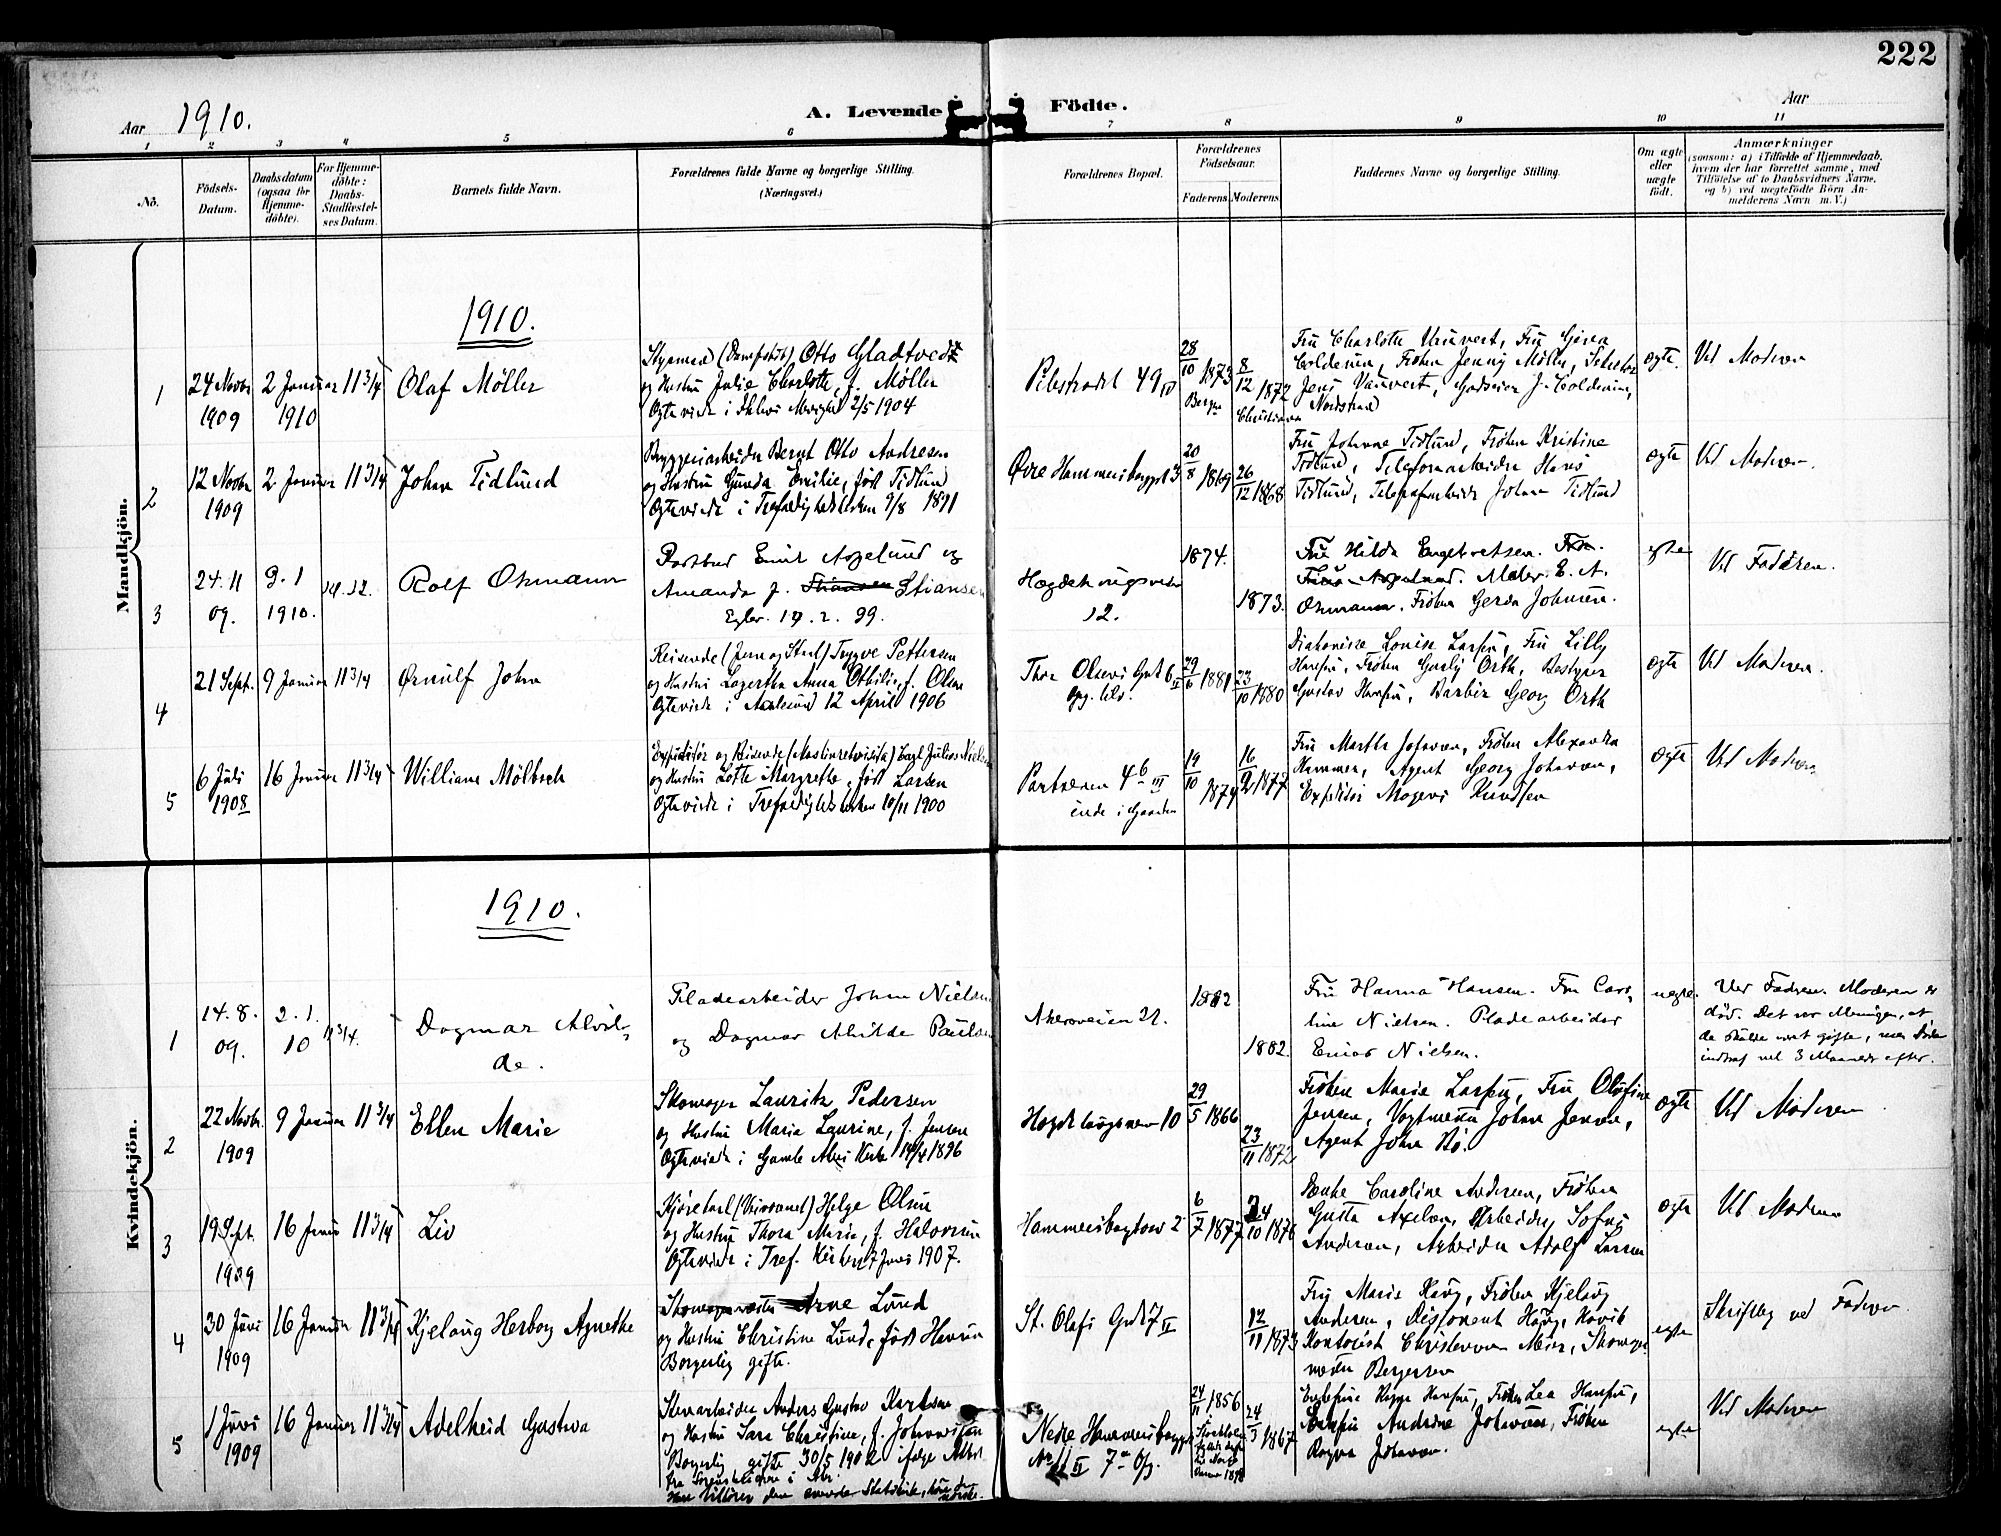 222
Aar 1910.
A. Levende Födte.
Aar
1 2 3 4 5 6 7 8 9 10 11
No.
Födsels-Datum.
Daabsdatum (ogsaa for Hjemme-döbte).
For Hjemme-döbte: Daabs-Stadfæstel-ses Datum.
Barnets fulde Navn.
Forældrenes fulde Navne og borgerlige Stilling. (Næringsvei.)
Forældrenes Bopæl.
Forældrenes Födselsaar.
Faderens Moderens
Faddernes Navne og borgerlige Stilling.
Om ægte eller uægte födt.
Anmærkninger
(saasom: a) i Tilfælde af Hjemmedaab,
hvem der har forrettet samme, med
Tilföielse af to Daabsvidners Navne,
og b) ved uægtefödte Börn An-
melderens Navn m. V.)
Mandkjön.
1910.
1
24 Novbr 1909
2 Januar 1910
11 3/4
Olaf Möller
Styrmand (Dampskib) Otto Gladtvedt
og Hustru Julie Charlotte, f. Møller
Ægteviede i 2/5 1904
Pilestrædet 49 IV
28/10 1873 Bergen
8/12 1872 Christiania
Fru Charlotte Fru
Frøken Jenny Møller,
Jens Godseier J. Coldevin,
Nordstrand
ægte
Ved Moderen
2
12 Novbr 1909
2 Januar
11 3/4
Johan Tidlund
Bryggeriarbeider Bernt Otto Andresen
og Hustru Gunda Emilie, født Tidlund
Ægteviede i Trefoldighedskirken 9/8 1891
Øvre Hammersborggt 3
20/8 1869
26/12 1868
Fru Johanne Tidlund, Frøken Kristine
Tidlund, Telefonarbeider Hans
Tidlund, Telegrafarbeider Johan Tidlund
ægte
Ved Moderen.
3
24.11 09.
9.1 1910.
Rolf Osmann
Postbud Emil Aspelund og
Amanda f. Stiansen
Egtev. 19.2.99.
Hægdehaugsveien 12.
1874.
1873.
Fru Hilda Engebretsen. Fru
Aspelund. Maler E. A.
Osmann. Frøken Gerda Johnsen.
egte
Ved Faderen.
4
21 Sept.
9 Januar
11 3/4
Ørnulf John
Reisende (Jern og Staal) Trygve Pettersen
og Hustru Lagertha Anna Othilie, f. Olsen
Ægteviede i Aalesund 12 April 1906
Thor Olsens Gade 6 II
Opg. tilv.
29/6 1881
23/10 1880
Diakonisse Louise Larsen, Fru Lilly
Hansen, Frøken Orth, Bestyrer
Gustav Hansen, Barber Georg Orth
ægte
Ved Moderen.
5
6 Juli 1908
16 Januar
11 3/4
William Mölbach
Expeditör og Reisende Carl Julius Nielsen
og Hustru Lotte Margrethe, født Larsen
Ægteviede i Trefoldighedskirken 10/11 1900
Parkveien 4b III
inde i Gaarden
19/10 1874
16/9 1877
Fru Martha Johansen, Frøken Alexandra
Hammer, Agent Georg Johansen,
Expeditör Mogens Knudsen
ægte
Ved Moderen
Kvindekjön.
1910.
1
14.8. 09.
2.1. 10
11 3/4.
Dagmar Alvil-
de.
Pladearbeider Johan Nielsen
og Dagmar Alvilde Paulsen
Akersveien 22.
1882
1882.
Fru Hanna Hansen. Fru Caro-
line Nielsen. Pladearbeider
Einar Nielsen.
uegte.
Ved Faderen. Moderen er
död. Det var Meningen, at
de skulde vært gifte, men Döden
indtraf vel 3 Maaneder efter.
2
22 Novbr. 1909
9 Januar
11 3/4
Ellen Marie
Skomager Lauritz Pedersen
og Hustru Maria Laurine, f. Jensen
Ægteviede i Gamle Akers Kirke 1896
Hægdehaugsveien 10
29/5 1866
23/11 1872
Frøken Marie Larsen, Fru Olufine
Jensen, Vogtmand Johan Jensen,
Agent Johan Bö.
ægte
Ved Moderen
3
19 Sept. 1909
16 Januar
11 3/4
Liv
Kjørekarl Helge Olsen
og Hustru Thora Marie, f. Halvorsen
Ægteviede i Tref. Kirken 7 Juni 1907.
Hammersborgtorv 2
6/7 1877
24/10 1876
Enke Caroline Andersen, Frøken
Gusta Axelsen, Arbeider Sofus
Andersen, Arbeider Adolf Larsen
ægte
Ved Moderen
4
30 Juni 1909
16 Januar
11 3/4
Kjelaug Herborg Agnethe
Skomagermester Arne Lund
og Hustru Christine Lund, født Hansen
Borgerlig gifte.
St. Olafs Gade 7 II
12/11 1873
Fru Marie Haug, Frøken Kjelaug
Andersen, Disponent Haug, Høvik
Kontorist Christensen Moe, Skomager-
mester Bergersen
egte
Skriftlig ved Faderen.
5
1 Juni 1909
16 Januar
11 3/4
Adelheid Gustava
Stenarbeider Anders Gustav Karlsson
og Hustru Sara Christine, f. Johannesdatter
Borgerlig gifte 30/5 1902 ifølge Attest
fra
Han tilhører den svenske Statskirke, hun den norske.
Nedre Hammersborggt
No 11 II 7de Opg.
24/11 1856
24/3 1867
Hansen, Frøken Lea Hansen,
Andrine Johansen, Frøken
Ragna Johansen.
egte
Ved Moderen